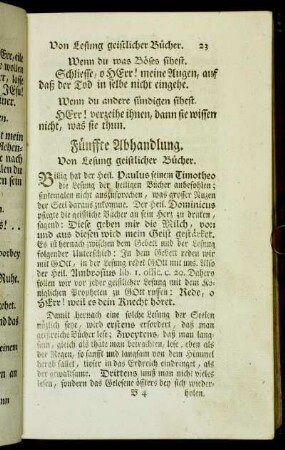 Von Lesung geistlicher Bücher. 23
Wenn du was Böses sihest.
Schliesse, o HErr! meine Augen, auf
daß der Tod in selbe nicht eingehe.
Wenn du andere sündigen sihest.
HErr! verzeihe ihnen, dann sie wissen
nicht, was sie thun.
Fünffte Abhandlung.
Von Lesung geistlicher Bücher.
Billig hat der Heil. Paulus seinem Timotheo
die Lesung der heiligen Bücher anbefohlen;
sintemalen nicht auszusprechen, was grosser Nutzen
der Seel daraus zukomme. Der Heil. Dominicus
pflegte die geistliche Bücher an sein Hertz zu drücken,
sagend: Diese geben mir die Milch, von
und aus diesen wird mein Geist gestärcket.
Es ist hernach zwischen dem Gebett und der Lesung
folgender Unterschied: Zu dem Gebett reden wir
mit GOtt, in der Lesung redet GOtt mit uns. Also
der Heil. Ambrosius lib. 1. offic. c. 20. Dahero
sollen wir vor jeder geistlicher Lesung mit dem Kö-
niglichen Propheten zu GOtt ruffen: Rede, o
HErr! weil es dein Knecht höret.
Damit hernach eine solche Lesung der Seelen
nützlich seye, wird erstens erfordert, daß man
geistreiche Bücher lese: Zweytens, daß man lang-
sam, gleich als thäte man betrachten, lese, eben als
der Regen, so sanfft und langsam von dem Himmel
herab fallet, tieffer in das Erdreich eindringet, als
der gewaltsame. Drittens muß man nicht vieles
lesen, sondern das Gelesene öffters bey sich wieder-
B 4 holen.